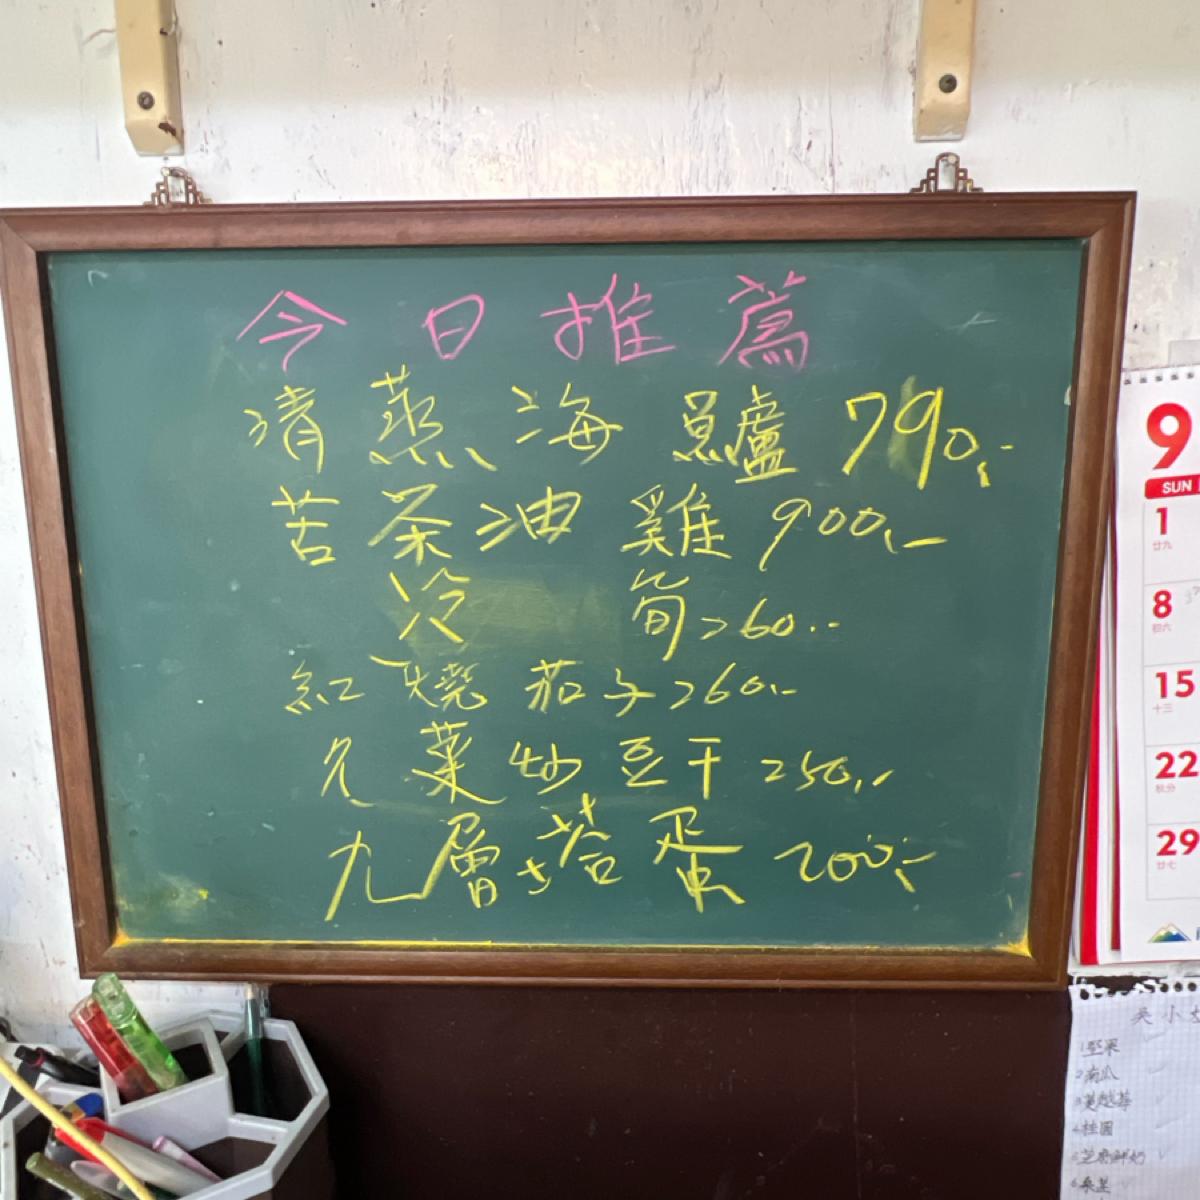 今日推薦
清蒸海鱸 790.-
苦茶油雞 900.-
冷筍 260.-
紅燒茄子 260.-
九菜炒豆干 250.-
九層塔蛋 200.-
9
SUN
1
廿九
8
初六
15
十三
22
秋分
29
廿七
吳小
1.堅果
2南瓜
3蔓越莓
4桂圓
5芝麻鮮奶
6桑葚